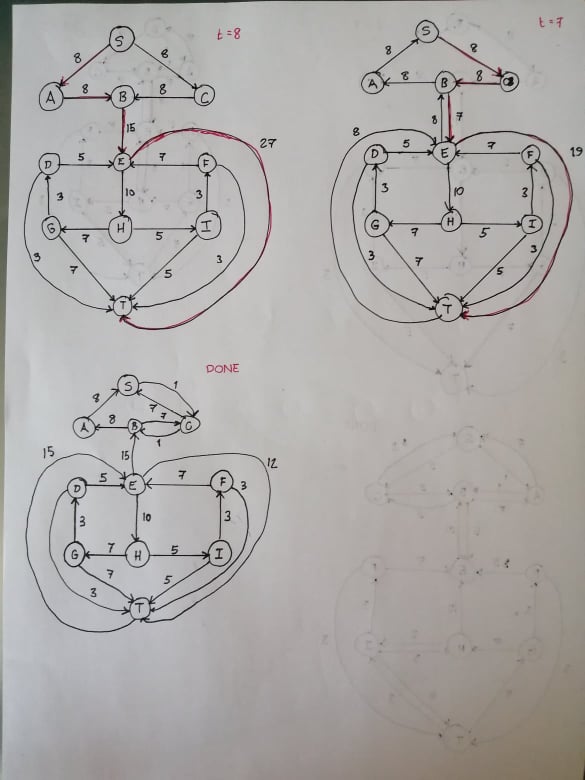 t=8
S
8 8
A 8 B 8 C
15
27
D 5 E 7 F
3 10 3
G 7 H 5 I
3 7 5 3
T
t=7
S
8 8
A 8 B 8
8 7
8
19
D 5 E 7 F
3 10 3
G 7 H 5 I
3 7 5 3
T
DONE
S 1
8 7
A 8 B 7 C
1
15
15 12
D 5 E 7 F 3
3 10 3
G 7 H 5 I
7 5
3
T